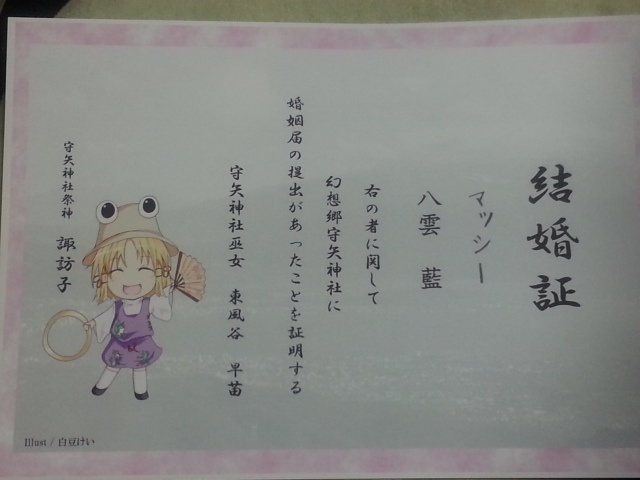 結婚証
マッシー
八雲 藍
右の者に関して
幻想郷守矢神社に
婚姻届の提出があったことを証明する
守矢神社巫女 東風谷 早苗
守矢神社祭神 諏訪子
Illust / 白豆けい